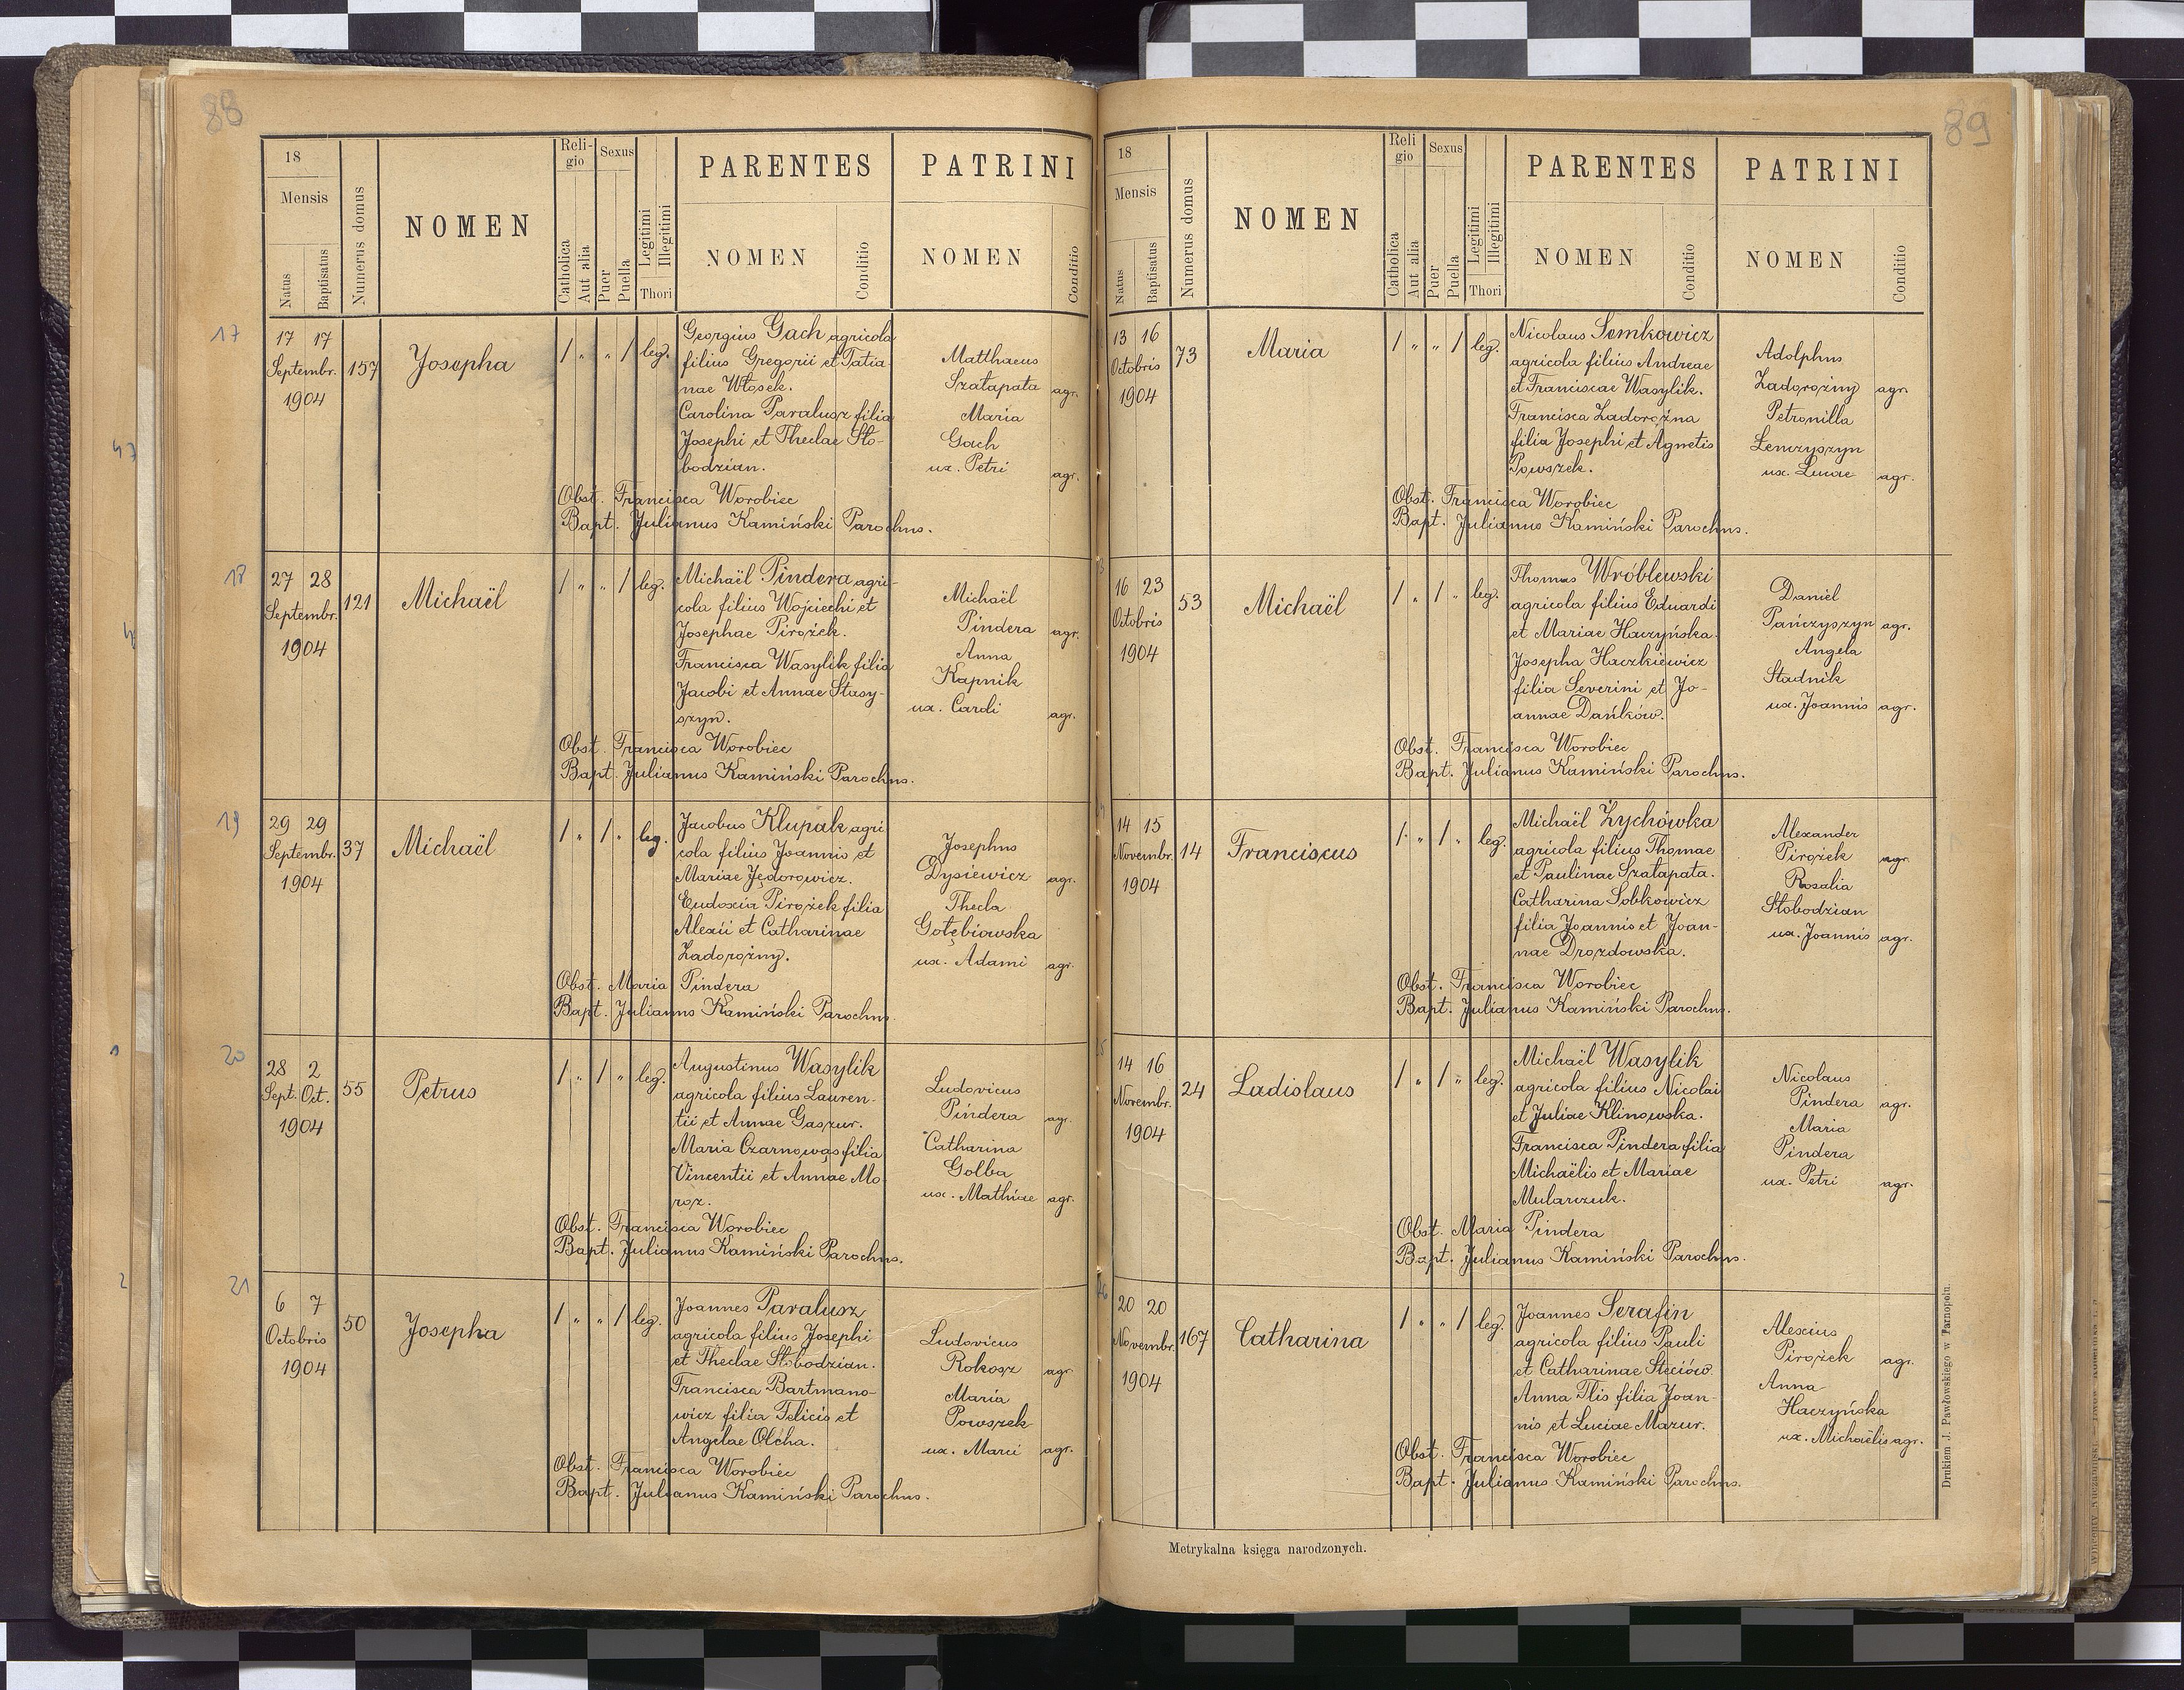 88
18
Mensis
Natus
Baptisatus
Numerus domus
NOMEN
Religio
Catholica
Aut alia
Sexus
Puer
Puella
Legitimi
Illegitimi
Thori
PARENTES
NOMEN
Conditio
PATRINI
NOMEN
Conditio
17
17 17
Septembr.
1904
157
Josepha
/ „ „ / leg.
Georgius Gach agricola
filius Gregorii et Tatia-
nae Włosek.
Carolina Paralusz filia
Josephi et Theclae Sło-
bodzian.
Matthaeus
Szałapata agr.
Maria
Gach
ux. Petri agr.
Obst. Francisca Worobiec
Bapt. Julianus Kamiński Parochus.
18
27 28
Septembr.
1904
121
Michaël
/ „ „ / leg.
Michaël Pindera agri-
cola filius Wojciechi et
Josephae Pirożek.
Francisca Wasylik filia
Jacobi et Annae Stasy-
szyn.
Michaël
Pindera agr.
Anna
Kapnik
ux. Caroli agr.
Obst. Francisca Worobiec
Bapt. Julianus Kamiński Parochus.
19
29 29
Septembr.
1904
37
Michaël
/ „ / „ leg.
Jacobus Klupak agri
cola filius Joannis et
Mariae Jędorowicz.
Eudoxia Pirożek filia
Alexii et Catharinae
Zadorożny.
Josephus
Dysiewicz agr.
Thecla
Gołębiowska
ux. Adami agr.
Obst. Maria Pindera
Bapt. Julianus Kamiński Parochus.
20
28 2
Sept. Oct.
1904
55
Petrus
/ „ / „ leg.
Augustinus Wasylik
agricola filius Lauren-
tii et Annae Gaszur.
Maria Czarnowąs filia
Vincentii et Annae Mo
roz.
Ludovicus
Pindera agr.
Catharina
Golba
ux. Mathiae agr.
Obst. Francisca Worobiec
Bapt. Julianus Kamiński Parochus.
21
6 7
Octobris
1904
50
Josepha
/ „ „ / leg.
Joannes Paralusz
agricola filius Josephi
et Theclae Słobodzian.
Francisca Bartmano-
wicz filia Felicis et
Angelae Olcha.
Ludovicus
Rokosz agr.
Maria
Powszek
ux. Marci agr.
Obst. Francisca Worobiec
Bapt. Julianus Kamiński Parochus.
89
18
Mensis
Natus
Baptisatus
Numerus domus
NOMEN
Religio
Catholica
Aut alia
Sexus
Puer
Puella
Legitimi
Illegitimi
Thori
PARENTES
NOMEN
Conditio
PATRINI
NOMEN
Conditio
13 16
Octobris
1904
73
Maria
/ „ „ / leg.
Nicolaus Semkowicz
agricola filius Andreae
et Franciscae Wasylik.
Francisca Zadorożna
filia Josephi et Agnetis
Powszek.
Adolphus
Zadorożny agr.
Petronilla
Łenczyszyn
ux. Lucae agr.
Obst. Francisca Worobiec
Bapt. Julianus Kamiński Parochus.
16 23
Octobris
1904
53
Michaël
/ „ / „ leg.
Thomas Wróblewski
agricola filius Eduardi
et Mariae Haczyńska.
Josepha Haczkiewicz
filia Severini et Jo-
annae Dańków.
Daniel
Pańczyszyn agr.
Angela
Stadnik
ux. Joannis agr.
Obst. Francisca Worobiec
Bapt. Julianus Kamiński Parochus.
14 15
Novembr.
1904
14
Franciscus
/ „ / „ leg.
Michaël Żychówka
agricola filius Thomae
et Paulinae Szałapata.
Catharina Sobkowicz
filia Joannis et Joan-
nae Drozdowska.
Alexander
Pirożek agr.
Rosalia
Słobodzian
ux. Joannis agr.
Obst. Francisca Worobiec
Bapt. Julianus Kamiński Parochus.
14 16
Novembr.
1904
24
Ladislaus
/ „ / „ leg.
Michaël Wasylik
agricola filius Nicolai
et Juliae Klinowska.
Francisca Pindera filia
Michaëlis et Mariae
Mularczuk.
Nicolaus
Pindera agr.
Maria
Pindera
ux. Petri agr.
Obst. Maria Pindera
Bapt. Julianus Kamiński Parochus.
20 20
Novembr.
1904
167
Catharina
/ „ „ / leg.
Joannes Serafin
agricola filius Pauli
et Catharinae Steciów.
Anna Flis filia Joan-
nis et Luciae Mazur.
Alexius
Pirożek agr.
Anna
Haczyńska
ux. Michaëlis agr.
Obst. Francisca Worobiec
Bapt. Julianus Kamiński Parochus.
Metrykalna księga narodzonych.
Drukiem J. Pawłowskiego w Tarnopolu.